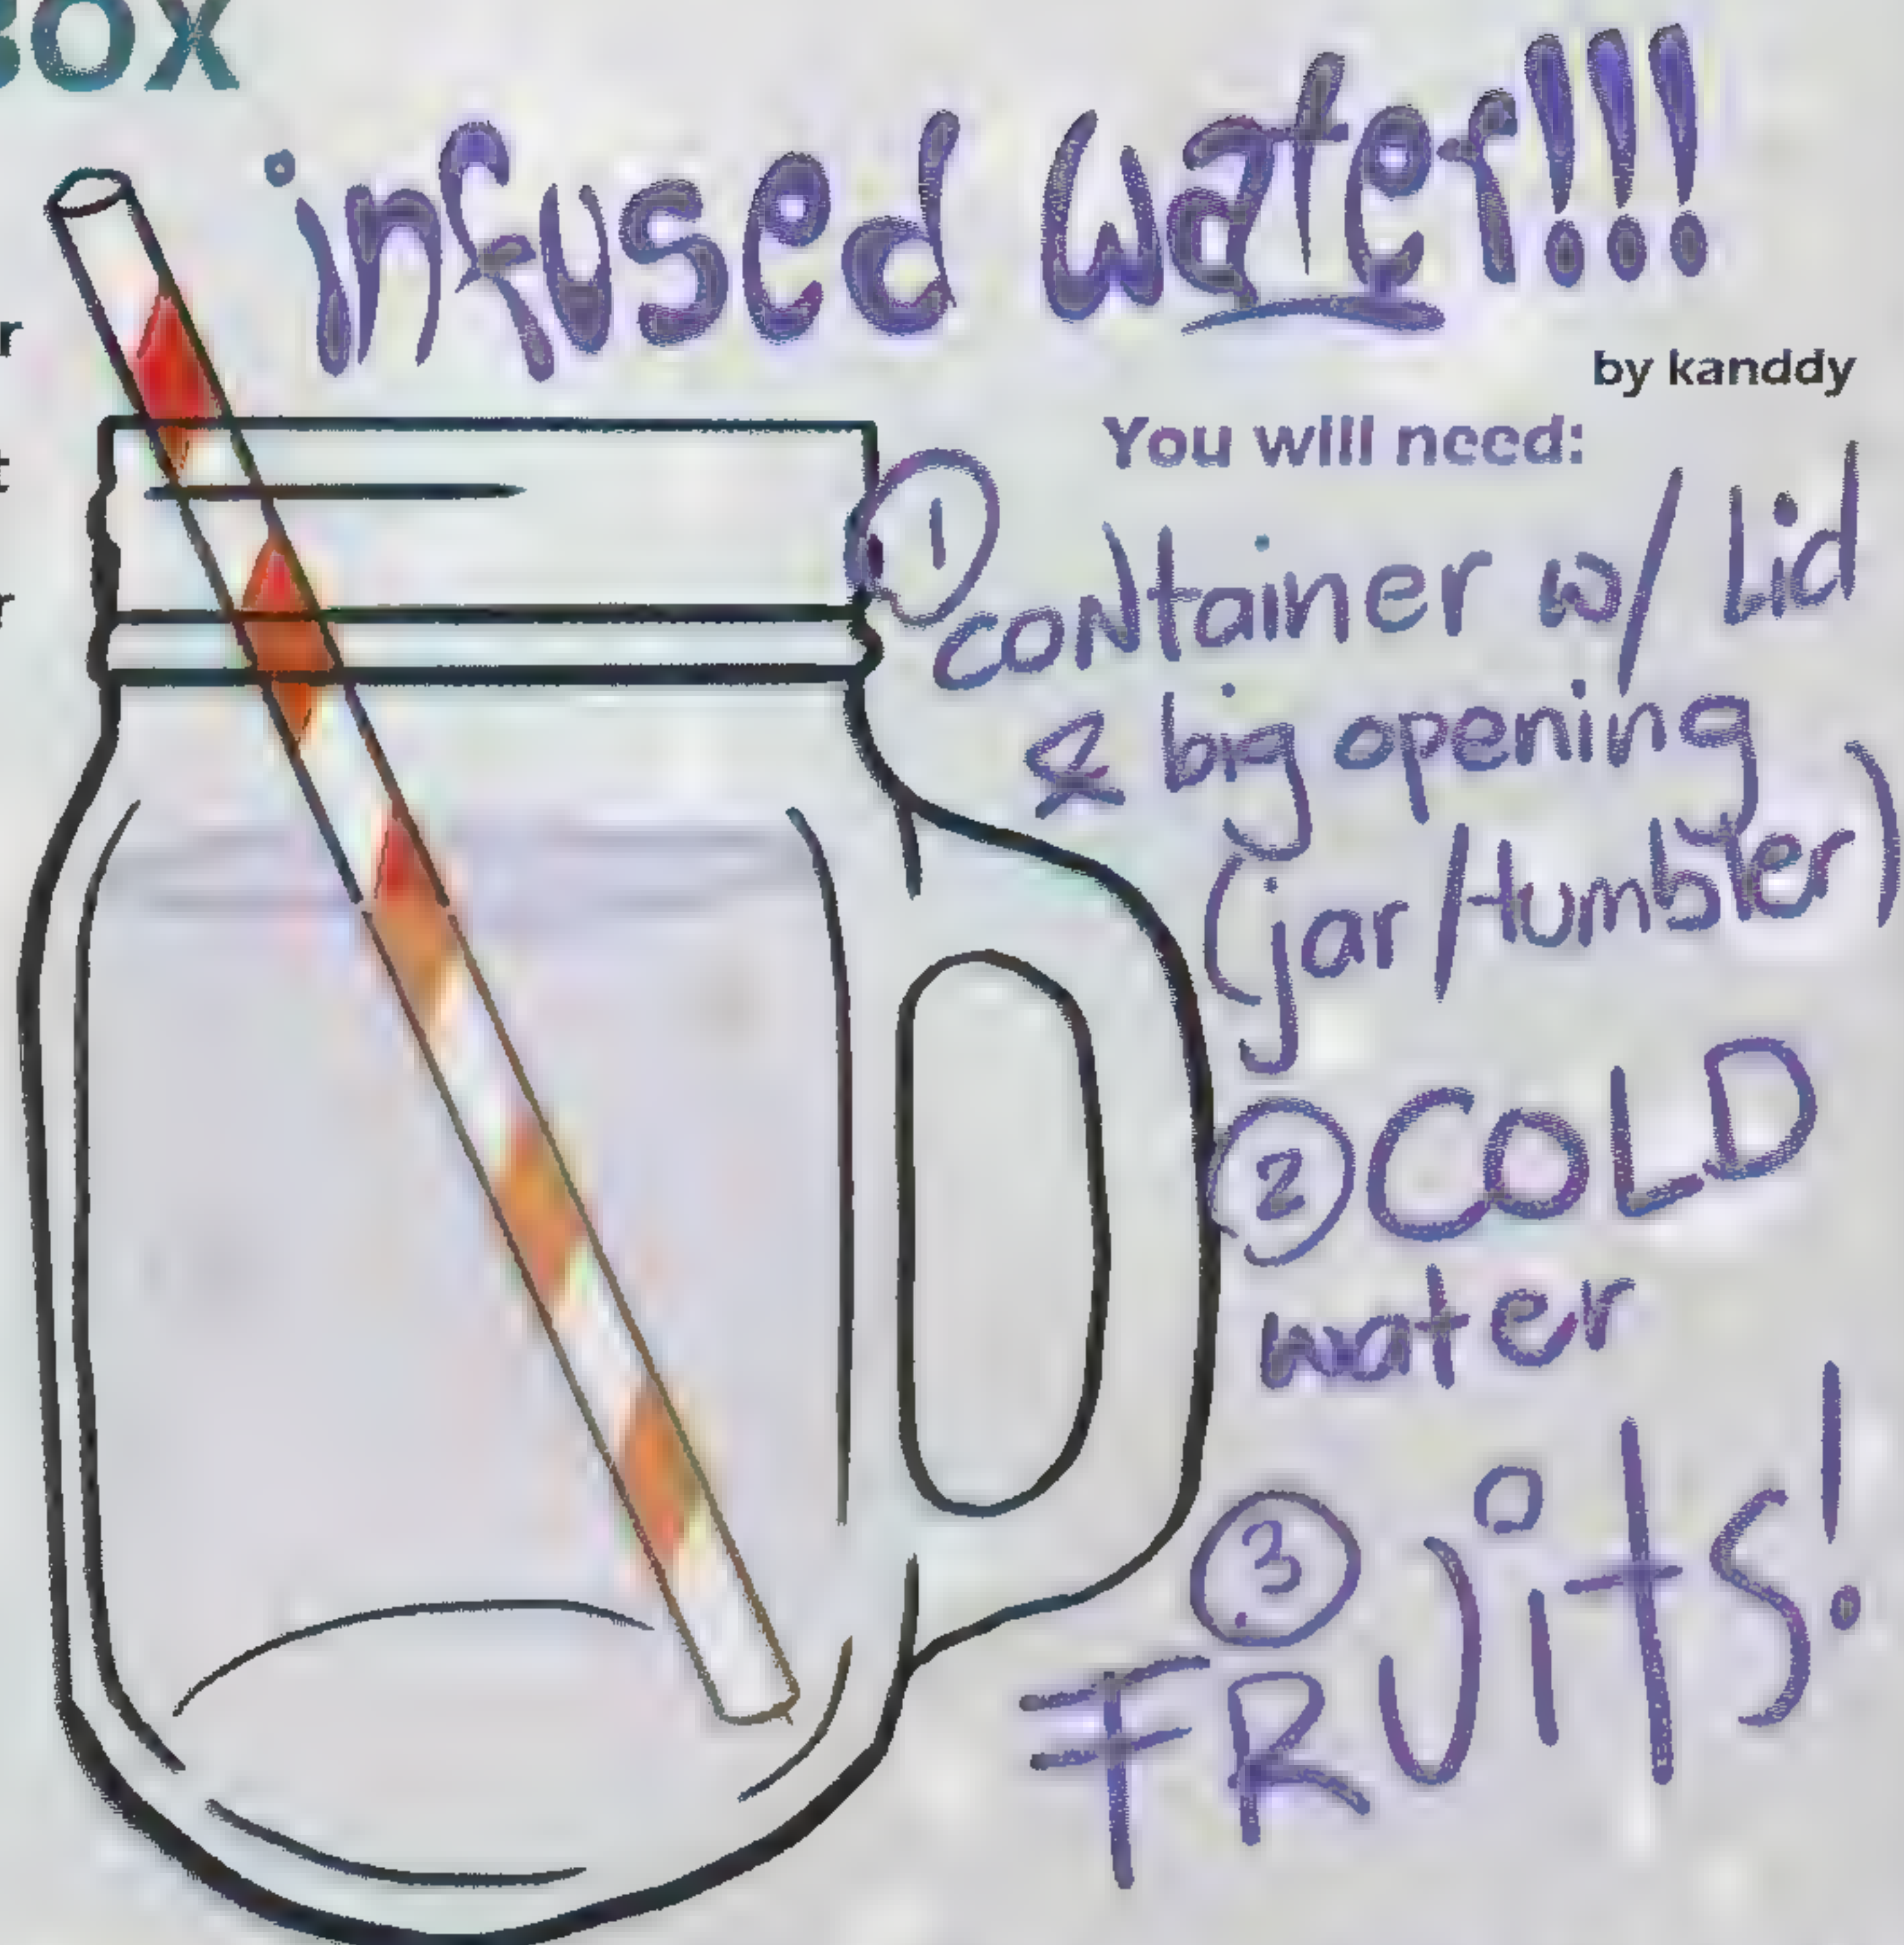 BOX
infused water!!!
by kanddy
You will need:
①
container w/ Lid
& big opening
(jar/tumbler)
② COLD
water
③
FRuits!